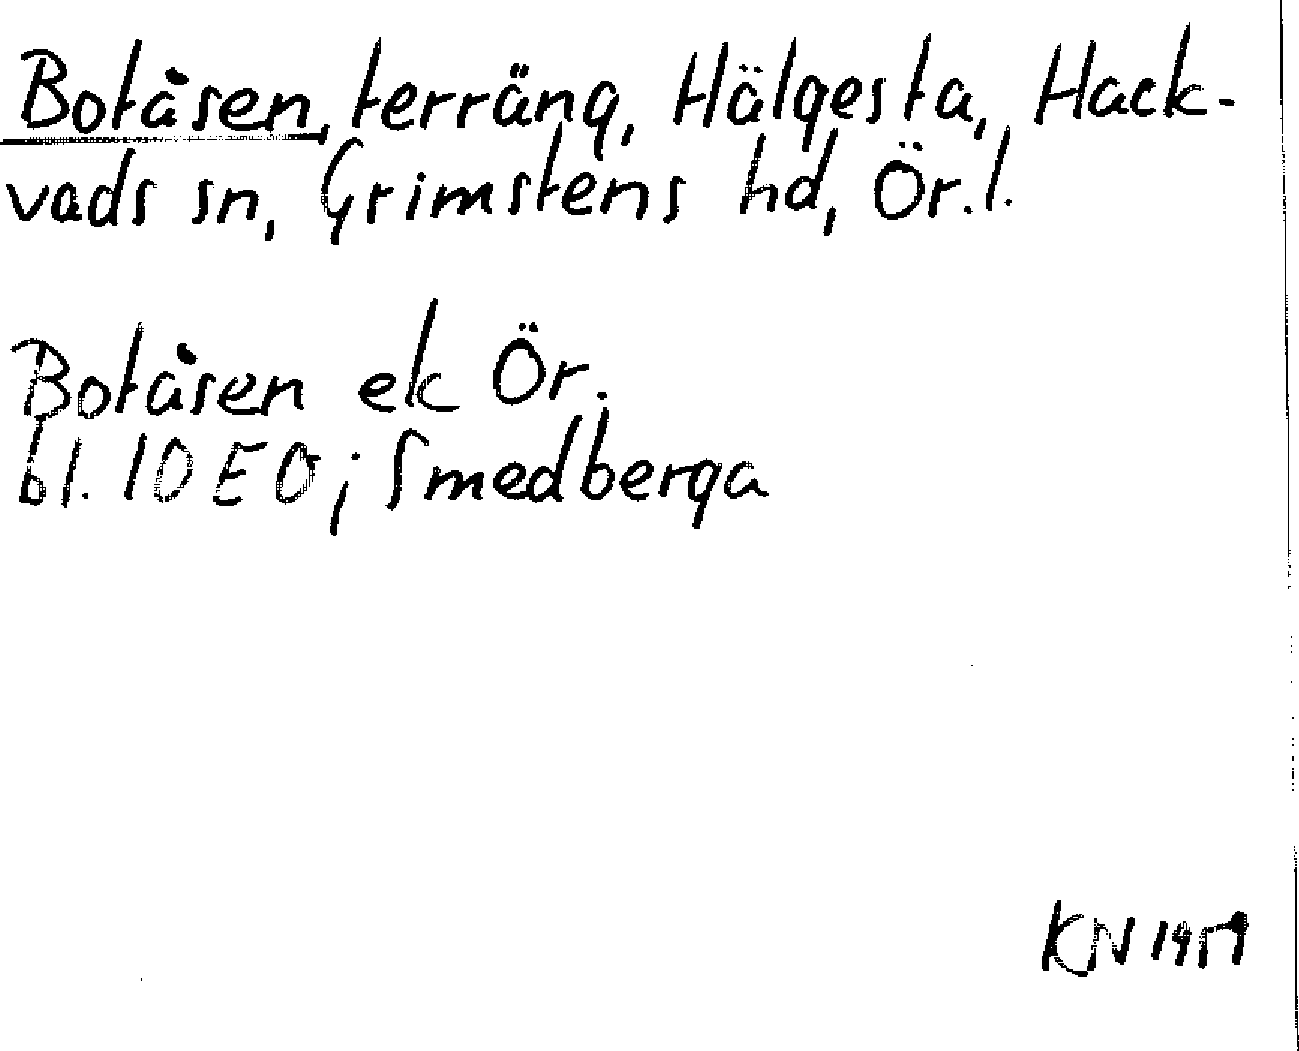 Botåsen, terräng, Hälgesta, Hack-
vads sn, Grimstens hd, Ör.l.
Botåsen ek Ör.
bl. 10E0; Smedberga
KN 1959